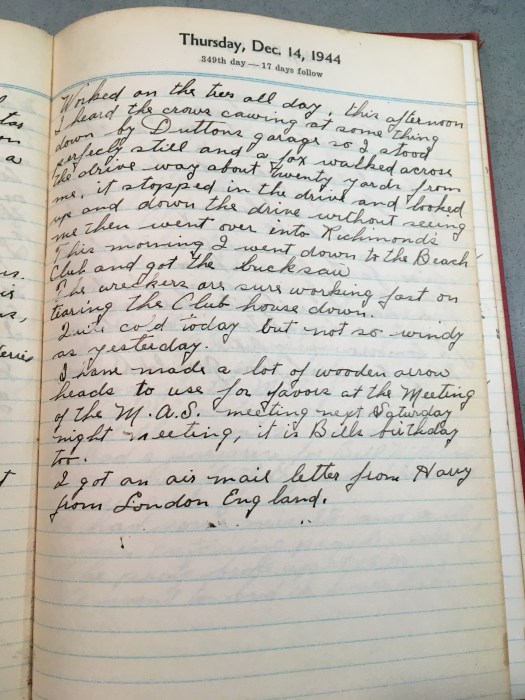 Thursday, Dec. 14, 1944
349th day — 17 days follow
Worked on the trees all day, this afternoon
I heard the crows cawing at some thing
down by Duttons garage so I stood
perfecly still and a fox walked across
the drive way about twenty yards from
me, it stopped in the drive and looked
up and down the drive without seeing
me then went over into Richmonds
This morning I went down to the Beach
Club and got the bucksaw
The wreckers are sure working fast on
tearing the Club house down.
Quite cold today but not so windy
as yesterday.
I have made a lot of wooden arrow
heads to use for favors at the Meeting
of the M.A.S. meeting next Saturday
night meeting, it is Bills birthday
to.
I got an air mail letter from Harry
from London England.